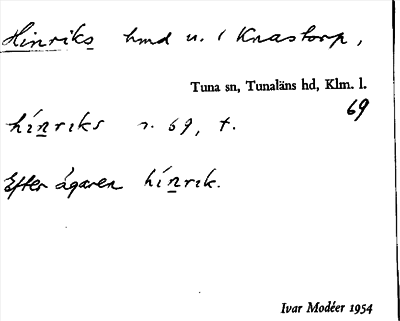 Hinriks hmd u. / Knastorp,
Tuna sn, Tunaläns hd, Klm. l.
69
hínriks r. 69, †.
Efter ägaren hínrik.
Ivar Modéer 1954